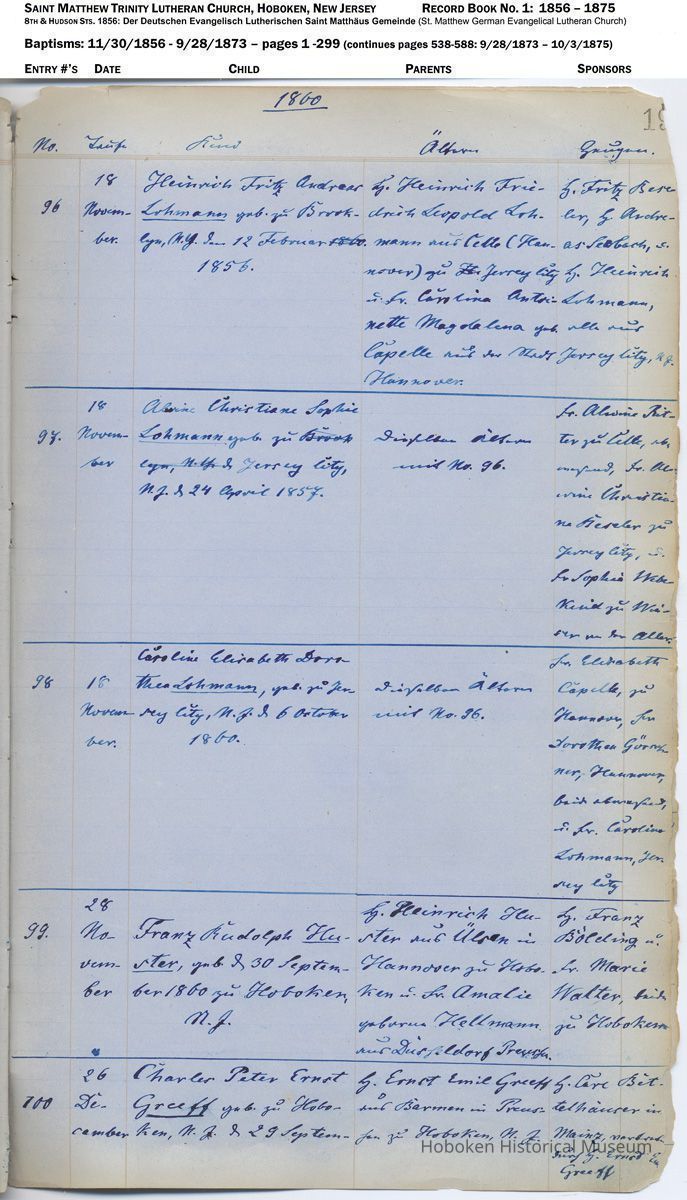 SAINT MATTHEW TRINITY LUTHERAN CHURCH, HOBOKEN, NEW JERSEY RECORD BOOK NO. 1: 1856 – 1875
8TH & HUDSON STS. 1856: Der Deutschen Evangelisch Lutherischen Saint Matthäus Gemeinde (St. Matthew German Evangelical Lutheran Church)
Baptisms: 11/30/1856 - 9/28/1873 – pages 1 -299 (continues pages 538-588: 9/28/1873 – 10/3/1875)
ENTRY #'S DATE CHILD PARENTS SPONSORS
1860
19
No. Taufe Kind Ältern Zeugen.
96
18
Novem-
ber.
Heinrich Fritz Andreas
Lohmann geb. zu Brook-
lyn, N.Y. den 12 Februar 1860.
1856.
H. Heinrich Frie-
drich Leopold Loh-
mann aus Celle (Han-
nover) zu Jersey City
u. Fr. Carolina Antoi-
nette Magdalena geb.
Capelle aus der Stadt
Hannover.
H. Fritz Kese-
ler, H. Andre-
as Seebach, u.
H. Heinrich
Lohmann,
alle aus
Jersey City, N.J.
97.
18
Novem-
ber
Alwine Christiane Sophie
Lohmann geb. zu Brook
lyn, N.Y. d. Jersey City,
N.J. d. 24 April 1857.
Dieselben Ältern
mit No. 96.
Fr. Alwine Rit-
ter zu Celle, ab-
wesend, Fr. Al-
wine Christia-
ne Keseler zu
Jersey City, u.
Fr Sophie Wede-
kind zu Win-
sen an der Aller.
98
18
Novem-
ber.
Caroline Elisabeth Doro-
thea Lohmann, geb. zu Jer-
sey City, N.J. d. 6 October
1860.
dieselben Ältern
mit No. 96.
Fr. Elisabeth
Capelle, zu
Hannover, Fr
Dorothea
Hannover,
beide abwesend,
u. Fr. Caroline
Lohmann, Jer-
sey City
99.
28
No-
vem-
ber
Franz Rudolph Hu-
ster, geb. d. 30 Septem-
ber 1860 zu Hoboken,
N.J.
H. Heinrich Hu-
ster aus Ülsen in
Hannover zu Hobo-
ken u. Fr. Amalie
geborne Hellmann
aus Düsseldorf Preussen.
H. Franz
Bölding u.
Fr. Marie
Walter, beide
zu Hoboken
100
26
De-
cember
Charles Peter Ernst
Greeff geb. zu Hobo-
ken, N.J. d. 29 Septem-
H. Ernst Emil Greeff
aus Barmen in Preus-
sen zu Hoboken, N.J.
H. Carl Bet-
telhäuser in
Mainz, vertret.
durch H. Ernst Em
Greeff
Hoboken Historical Museum